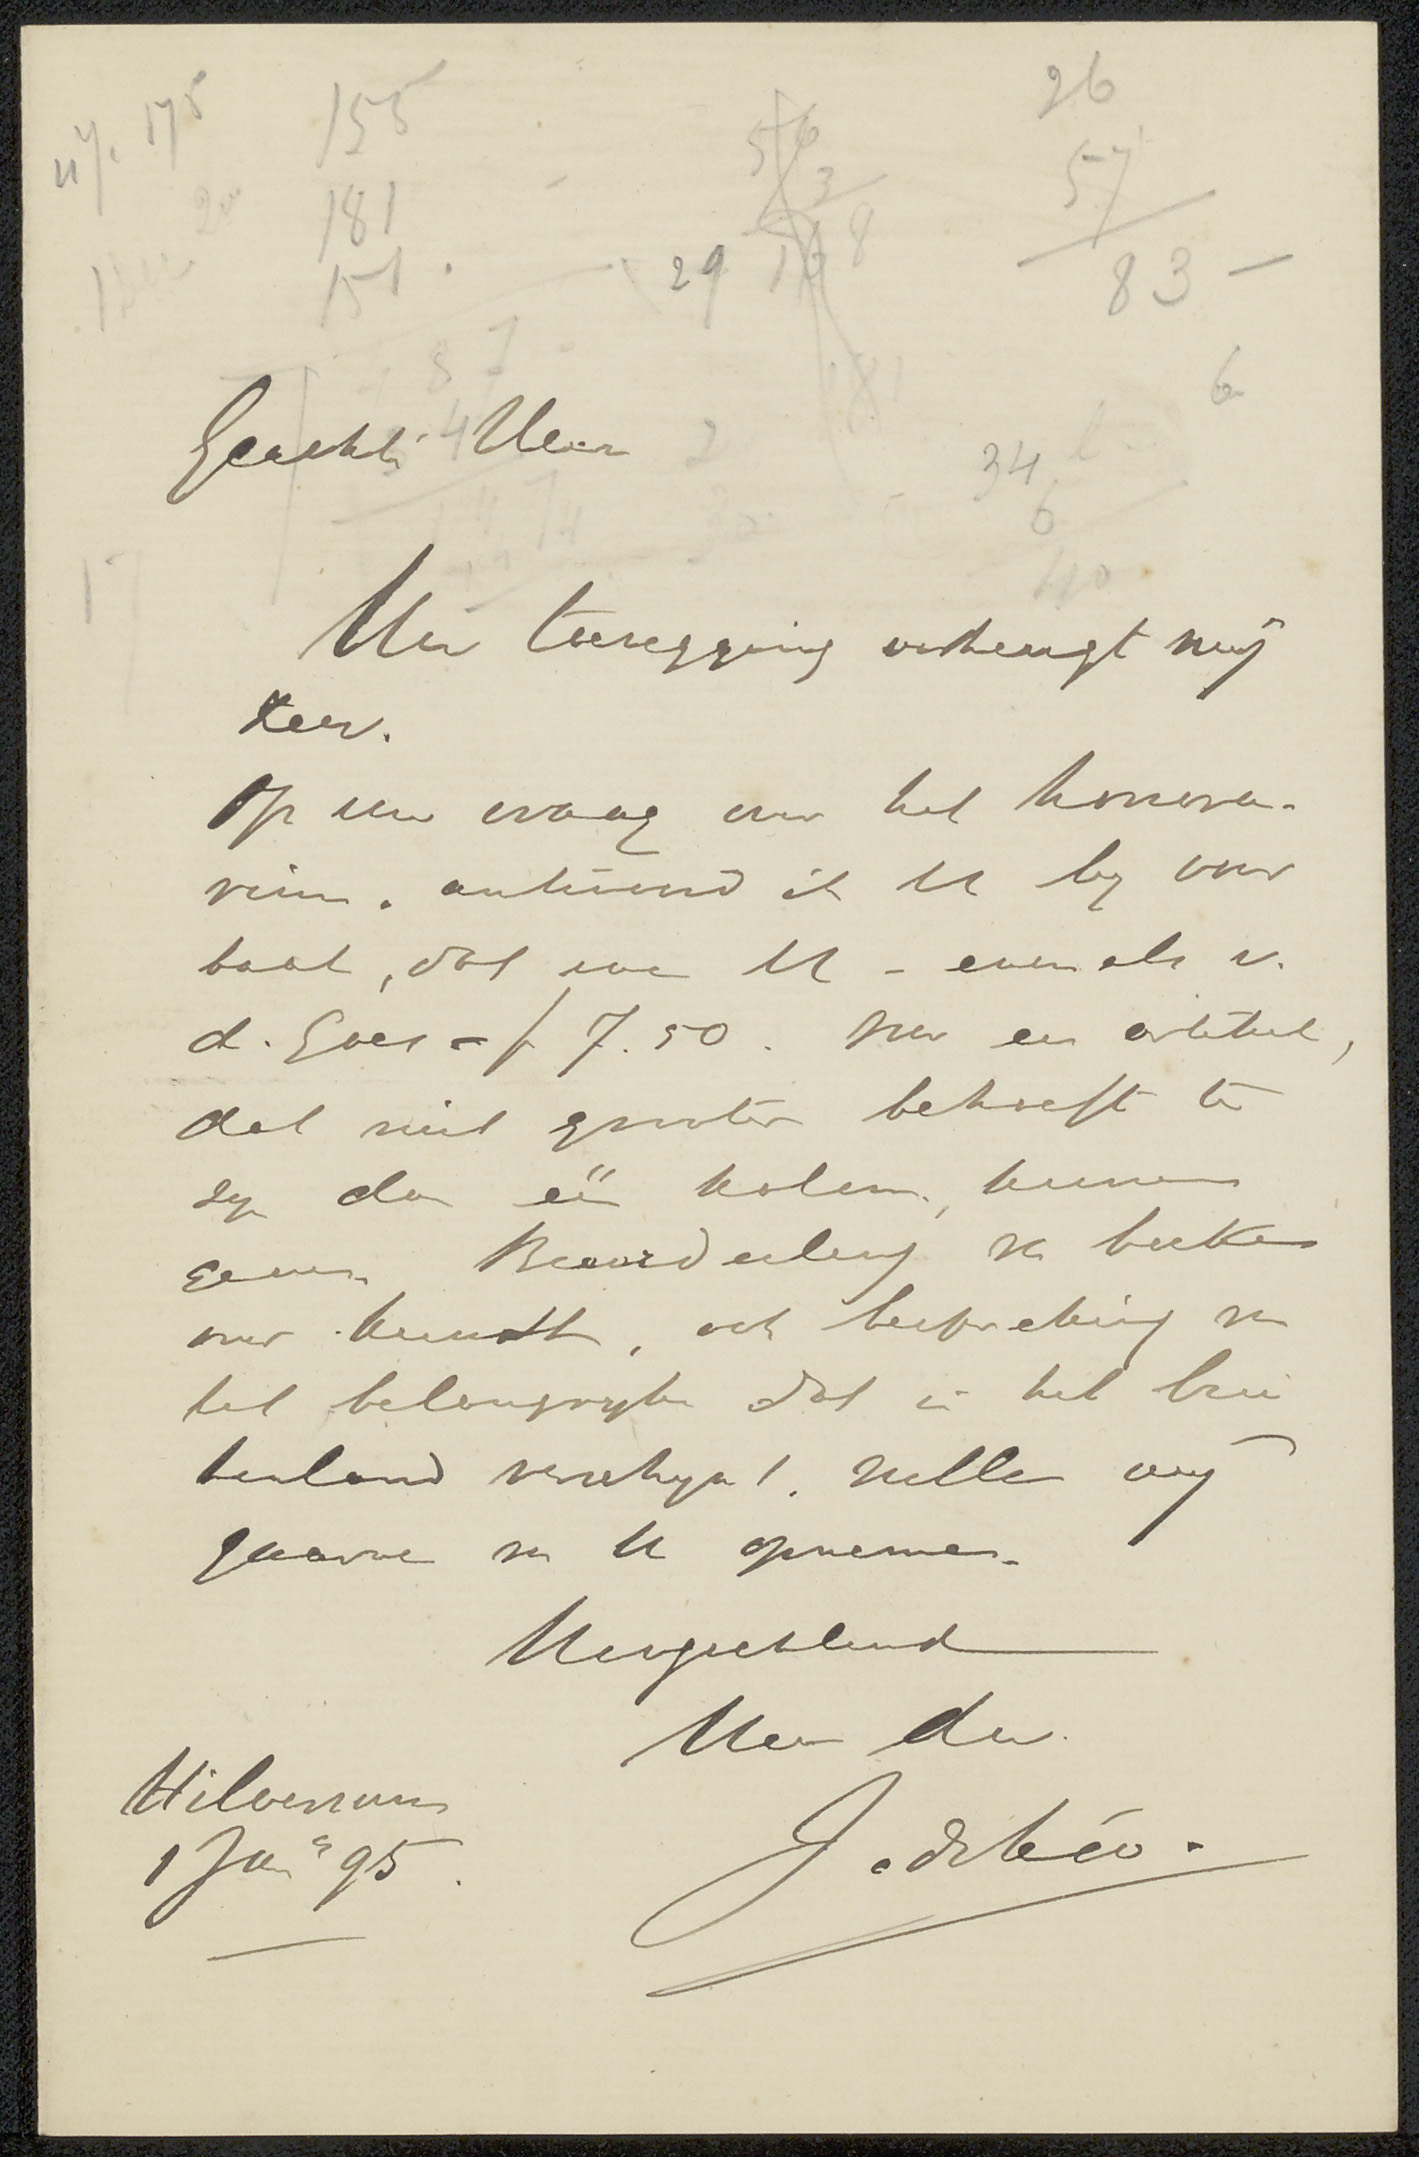 175
155
181
151
29
26
57
83 –
6
34
6
40
17
Geachte Heer
Uw toezegging verheugt mij
zeer.
Op uw vraag over het honora-
rium. antwoord ik U by voor
baat, dat we U – evenals v.
d. Goes – f 7.50. voor een artikel,
dat niet grooter behoeft te
zyn dan één kolom, kunnen
geven. Beoordeeling van boeken
over kunst, ook bespreking van
het belangryke dat in het bui
tenland verschynt. zullen wij
gaarne van U opnemen.
Hoogachtend
Uw dw.
J. de Koo.
Hilversum
1 Jan 95.